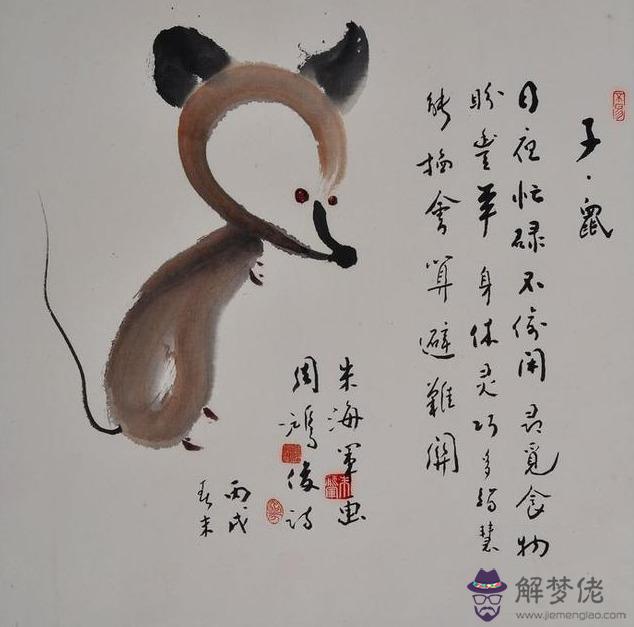 子·鼠
日夜忙碌不偷闲寻觅食物
盼豐年身体灵巧多智慧
能掐會算避難關
朱海军画
周鸿俊诗
丙戌
春末
解梦佬
www.jiemenglao.com